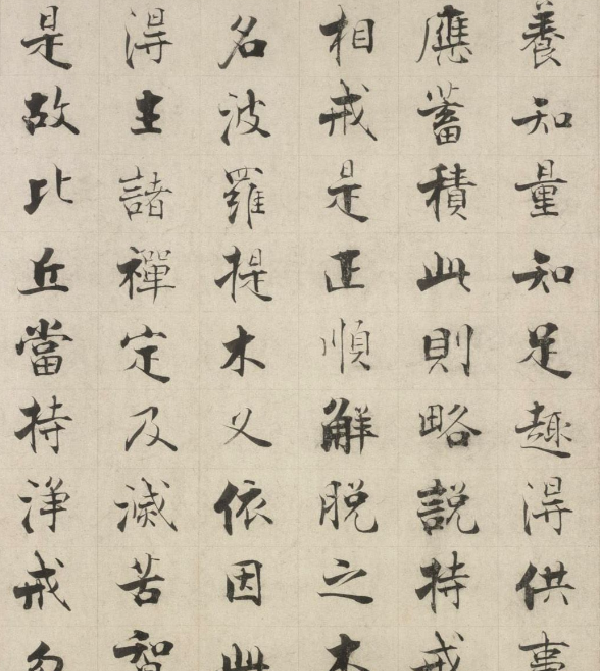 養知量知足趣得供事
應蓄積此則略説持戒
相戒是正順解脱之本
名波羅提木叉依因此
得生諸禪定及滅苦智
是故比丘當持淨戒勿